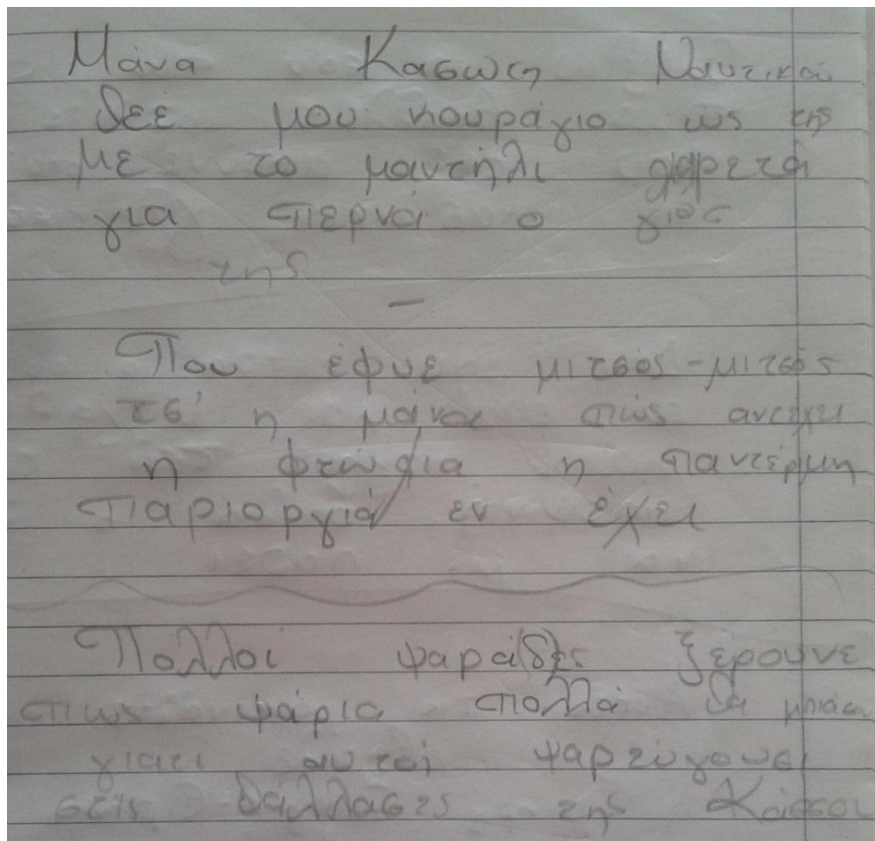 Μάνα Κασώτη Ναυτικού
θεέ μου κουράγιο ως της
Με το μαντήλι χαιρετά
για περνά ο γιός
της
–
Που έφυε μιτσός-μιτσός
τσ' η μάνα πώς αντέχει
η φτώχια η παντέρμη
παριοργιά εν έχει
Πολλοί ψαράδες ξέρουνε
πως ψάρια πολλά θα μπιάσου
γιατί αυτοί ψαρεύγουσι
στις θάλλασες της Κάσσου